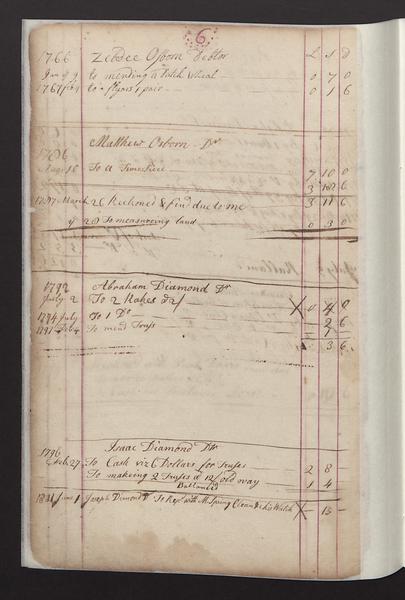 6
1766 Zebdee Osborn Debtor L S D
Jan y 9 to mending a Dutch Wheal 0 7 0
1767 Feb 4 to flyars 1 pair 0 1 6
1786 Matthew Osborn Dr
Aug 16 To a Timepiece 7 10 0
3 6
1787 March 26 Reckoned & find due to me 3 11 6
28 To measuering land 0 3 0
1792 Abraham Diamond Dr
July 2 To 2 Rakes @ 2/ X 0 4 0
1794 July To 1 Do 2 6
1797 Feb 4 To mend Truss
3 6
Isaac Diamond Dr
1796
Feb. 27 To Cash viz 6 Dollars for Trusses 2 8
To makeing 2 Trusses @ 12/ old way 1 4
Ballanced
June 1 Joseph Dimond Dr To Repg with M Spring Clean &c his Watch X 15